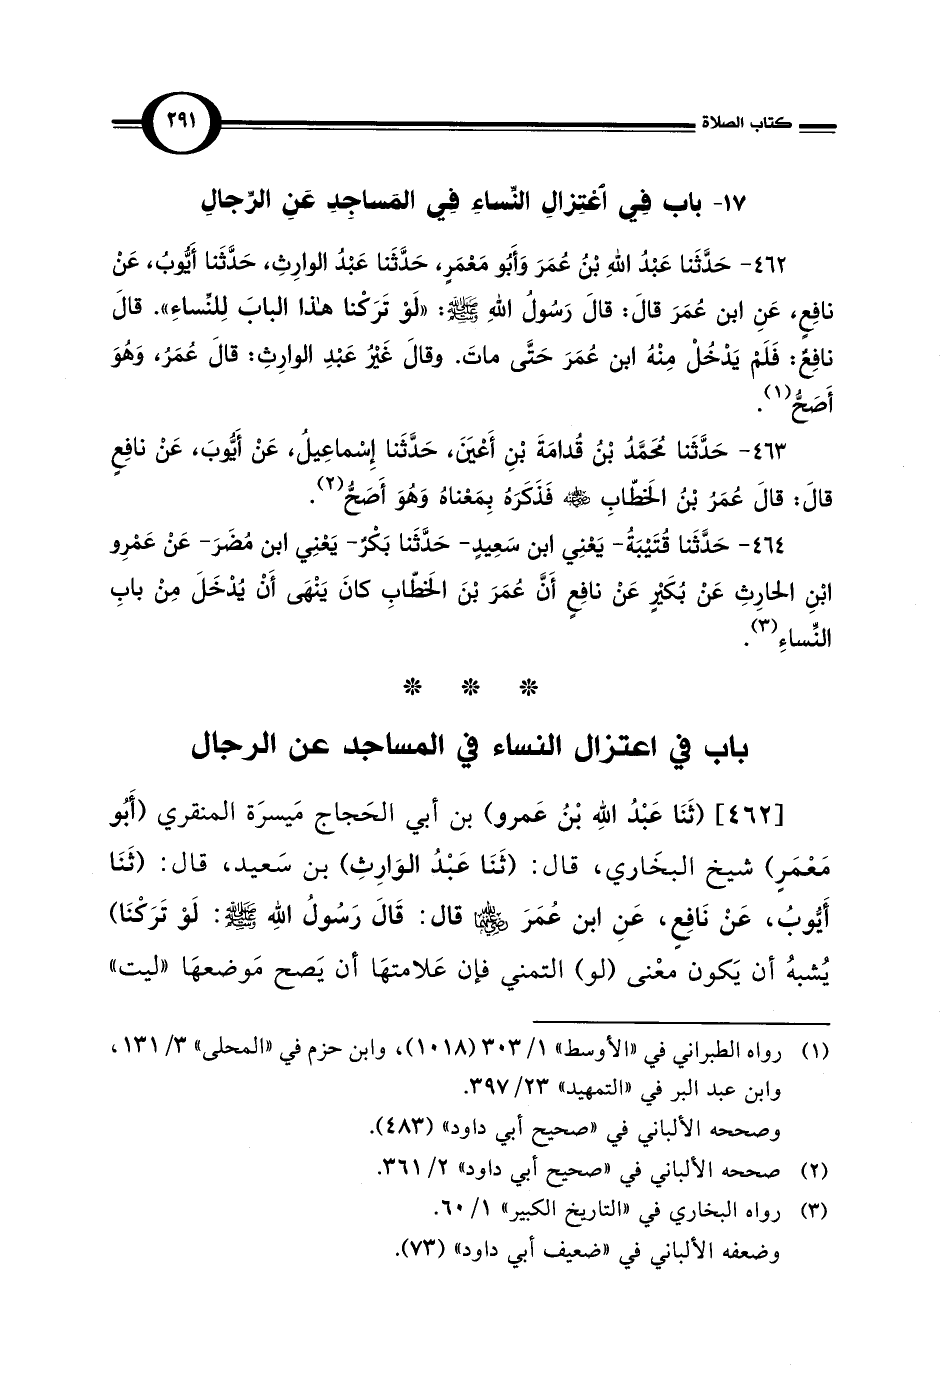 كتاب الصلاة ٢٩١
١٧- باب فِي اَعْتِزالِ النِّساءِ فِي المَساجِدِ عَنِ الرِّجالِ
٤٦٢- حَدَّثَنا عَبْدُ اللهِ بْنُ عُمَرَ وَأَبُو مَعْمَرٍ، حَدَّثَنا عَبْدُ الوارِثِ، حَدَّثَنا أَيُّوبُ، عَنْ
نافِعٍ، عَنِ ابن عُمَرَ قالَ: قالَ رَسُولُ اللهِ ﷺ: «لَوْ تَرَكْنا هذا البابَ لِلنِّساءِ». قالَ
نافِعٌ: فَلَمْ يَدْخُلْ مِنْهُ ابن عُمَرَ حَتَّى ماتَ. وقالَ غَيْرُ عَبْدِ الوارِثِ: قالَ عُمَرُ، وَهُوَ
أَصَحُّ(١).
٤٦٣- حَدَّثَنا مُحَمَّدُ بْنُ قُدامَةَ بْنِ أَعْيَنَ، حَدَّثَنا إِسْماعِيلُ، عَنْ أَيُّوبَ، عَنْ نافِعٍ
قالَ: قالَ عُمَرُ بْنُ الخَطّابِ رضي الله عنه فَذَكَرَهُ بِمَعْناهُ وَهُوَ أَصَحُّ(٢).
٤٦٤- حَدَّثَنا قُتَيْبَةُ- يَعْنِي ابن سَعِيدٍ- حَدَّثَنا بَكْرٌ- يَعْنِي ابن مُضَرَ- عَنْ عَمْرِو
ابْنِ الحارِثِ عَنْ بُكَيْرٍ عَنْ نافِعٍ أَنَّ عُمَرَ بْنَ الخَطّابِ كانَ يَنْهَى أَنْ يُدْخَلَ مِنْ بابِ
النِّساءِ(٣).
* * *
باب في اعتزال النساء في المساجد عن الرجال
[٤٦٢] (ثَنَا عَبْدُ اللهِ بْنُ عَمرو) بن أبي الحَجاج مَيسرَة المنقري (أَبُو
مَعْمَرٍ) شيخ البخَاري، قال: (ثَنَا عَبْدُ الوَارِثِ) بن سَعيد، قال: (ثَنَا
أَيُّوبُ، عَنْ نَافِعٍ، عَنِ ابن عُمَرَ رضي الله عنهما قال: قَالَ رَسُولُ اللهِ ﷺ: لَوْ تَرَكْنَا)
يُشبهُ أن يَكون معْنى (لو) التمني فإن عَلامتهَا أن يَصح مَوضعهَا «ليت»
(١) رواه الطبراني في «الأوسط» ١/ ٣٠٣ (١٠١٨)، وابن حزم في «المحلى» ٣/ ١٣١،
وابن عبد البر في «التمهيد» ٢٣/ ٣٩٧.
وصححه الألباني في «صحيح أبي داود» (٤٨٣).
(٢) صححه الألباني في «صحيح أبي داود» ٢/ ٣٦١.
(٣) رواه البخاري في «التاريخ الكبير» ١/ ٦٠.
وضعفه الألباني في «ضعيف أبي داود» (٧٣).